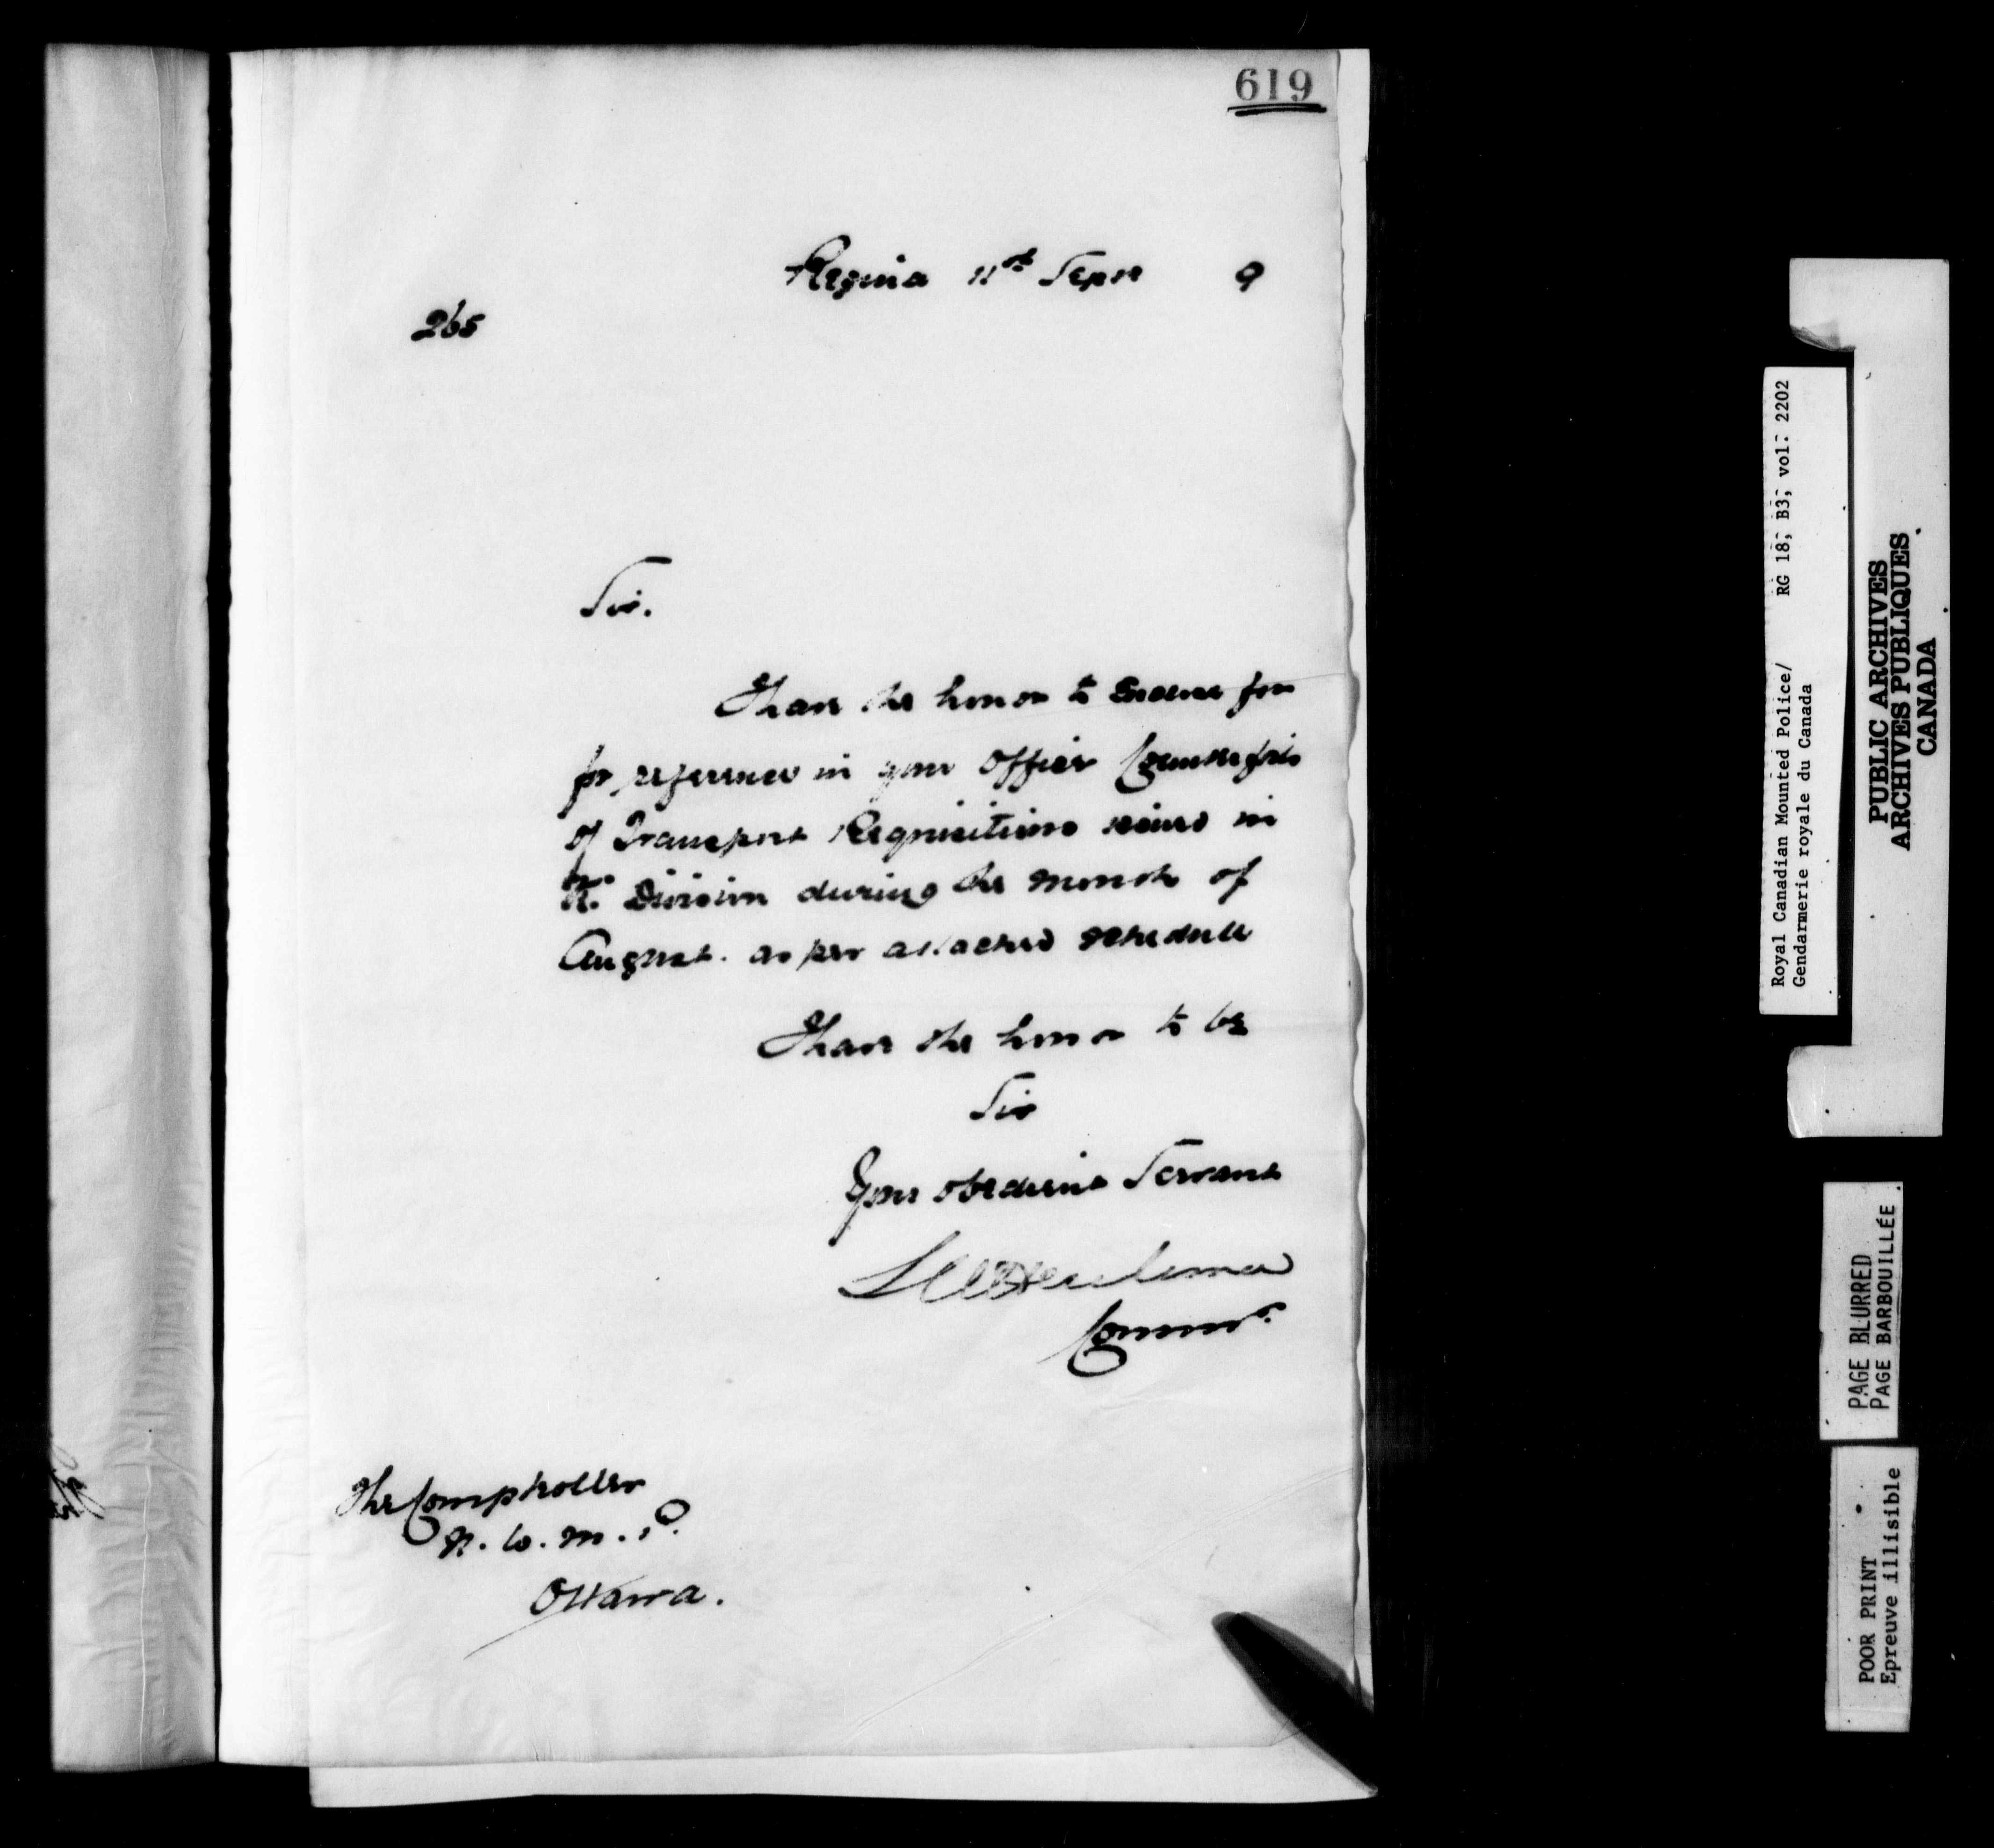 619
Regina 11th Sept 9
265
Sir.
I have the honor to enclose for
for reference in your Office Counterfoils
of Transport Requisitions issued in
Division during the month of
August. as per attached schedule
I have the honor to be
Sir
Your obedient Servant
LWHerchmer
Commr.
The Comptroller
N. W. M. P.
Ottawa.
Royal Canadian Mounted Police/ RG 18, B3, vol. 2202
Gendarmerie royale du Canada
PUBLIC ARCHIVES
ARCHIVES PUBLIQUES
CANADA
PAGE BLURRED
PAGE BARBOUILLÉE
POOR PRINT
Epreuve illisible